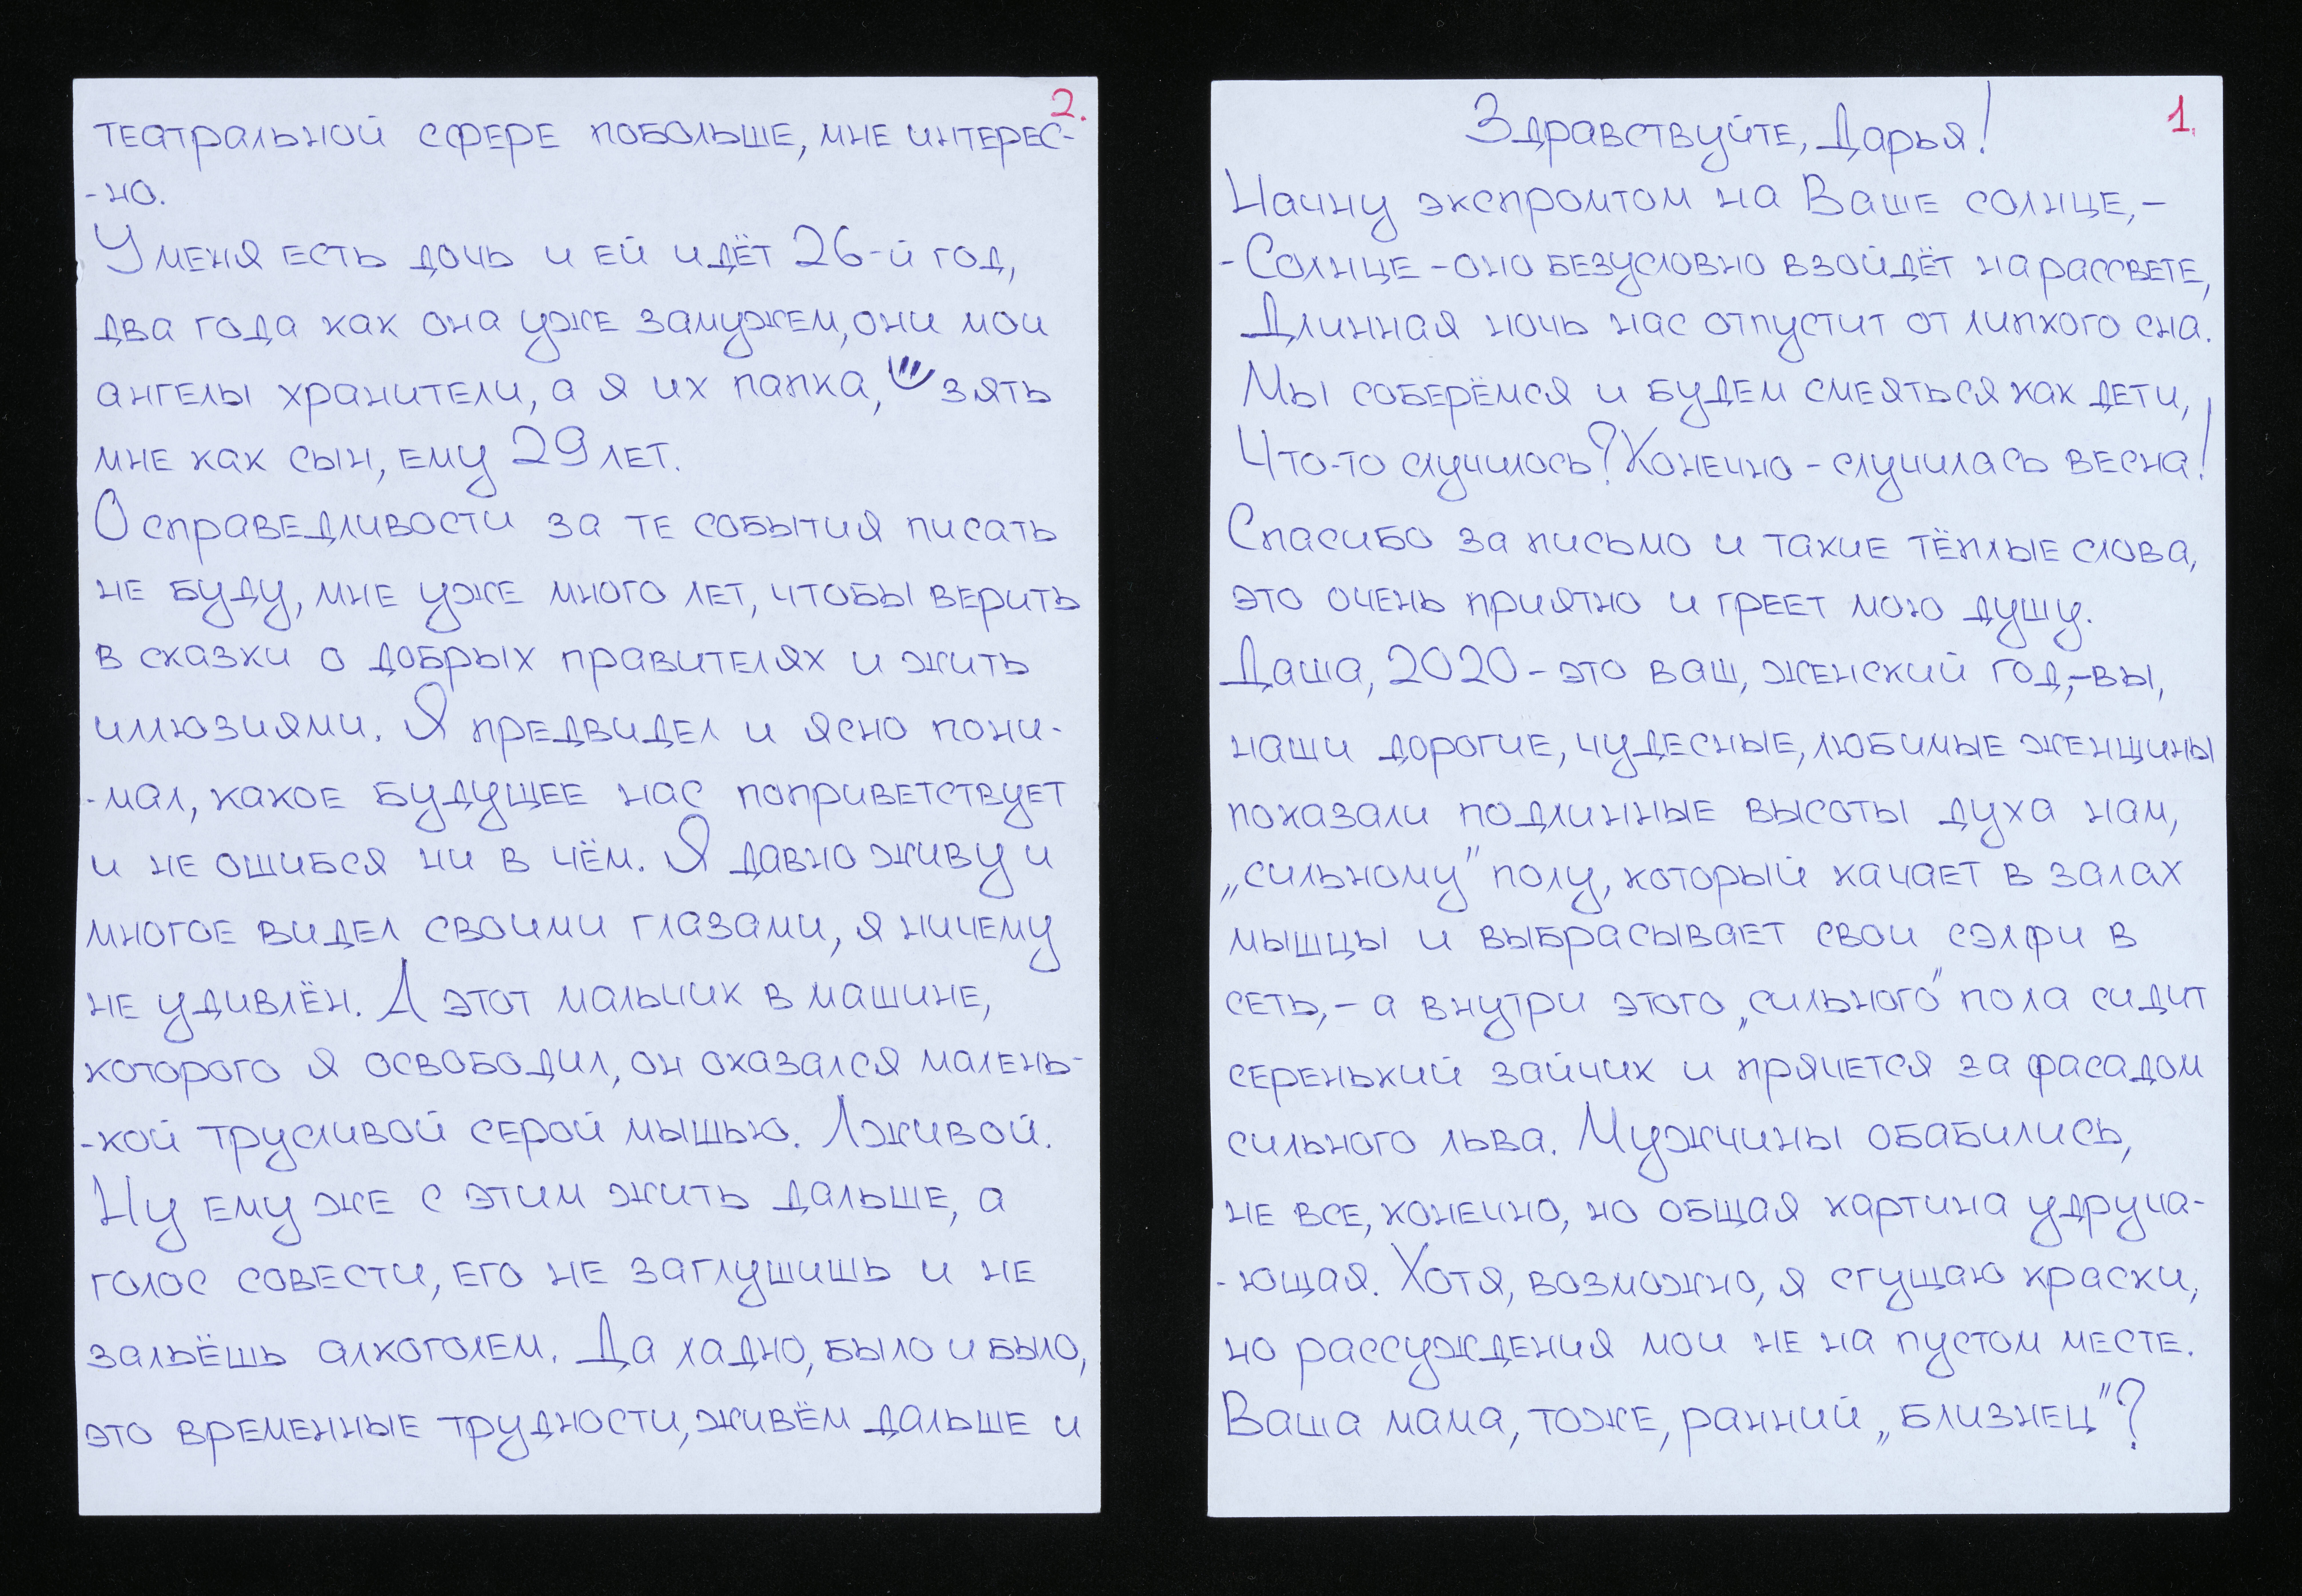 1.
Здравствуйте, Дарья!
Начну экспромтом на Ваше солнце,-
-Солнце - оно безусловно взойдёт на рассвете,
Длинная ночь нас отпустит от липкого сна.
Мы соберёмся и будем смеяться как дети,
Что-то случилось? Конечно - случилась весна!
Спасибо за письмо и такие тёплые слова,
это очень приятно и греет мою душу.
Даша, 2020 - это ваш, женский год,- вы,
наши дорогие, чудесные, любимые женщины
показали подлинные высоты духа нам,
„сильному" полу, который качает в залах
мышцы и выбрасывает свои сэлфи в
сеть,- а внутри этого „сильного" пола сидит
серенький зайчик и прячется за фасадом
сильного льва. Мужчины обабились,
не все, конечно, но общая картина удруча-
-ющая. Хотя, возможно, я сгущаю краски,
но рассуждения мои не на пустом месте.
Ваша мама, тоже, ранний „близнец"?
2.
театральной сфере побольше, мне интерес-
-но.
У меня есть дочь и ей идёт 26-й год,
два года как она уже замужем, они мои
ангелы хранители, а я их папка, зять
мне как сын, ему 29 лет.
О справедливости за те события писать
не буду, мне уже много лет, чтобы верить
в сказки о добрых правителях и жить
иллюзиями. Я предвидел и ясно пони-
-мал, какое будущее нас поприветствует
и не ошибся ни в чём. Я давно живу и
многое видел своими глазами, я ничему
не удивлён. А этот мальчик в машине,
которого я освободил, он оказался малень-
-кой трусливой серой мышью. Лживой.
Ну ему же с этим жить дальше, а
голос совести, его не заглушишь и не
зальёшь алкоголем. Да ладно, было и было,
это временные трудности, живём дальше и